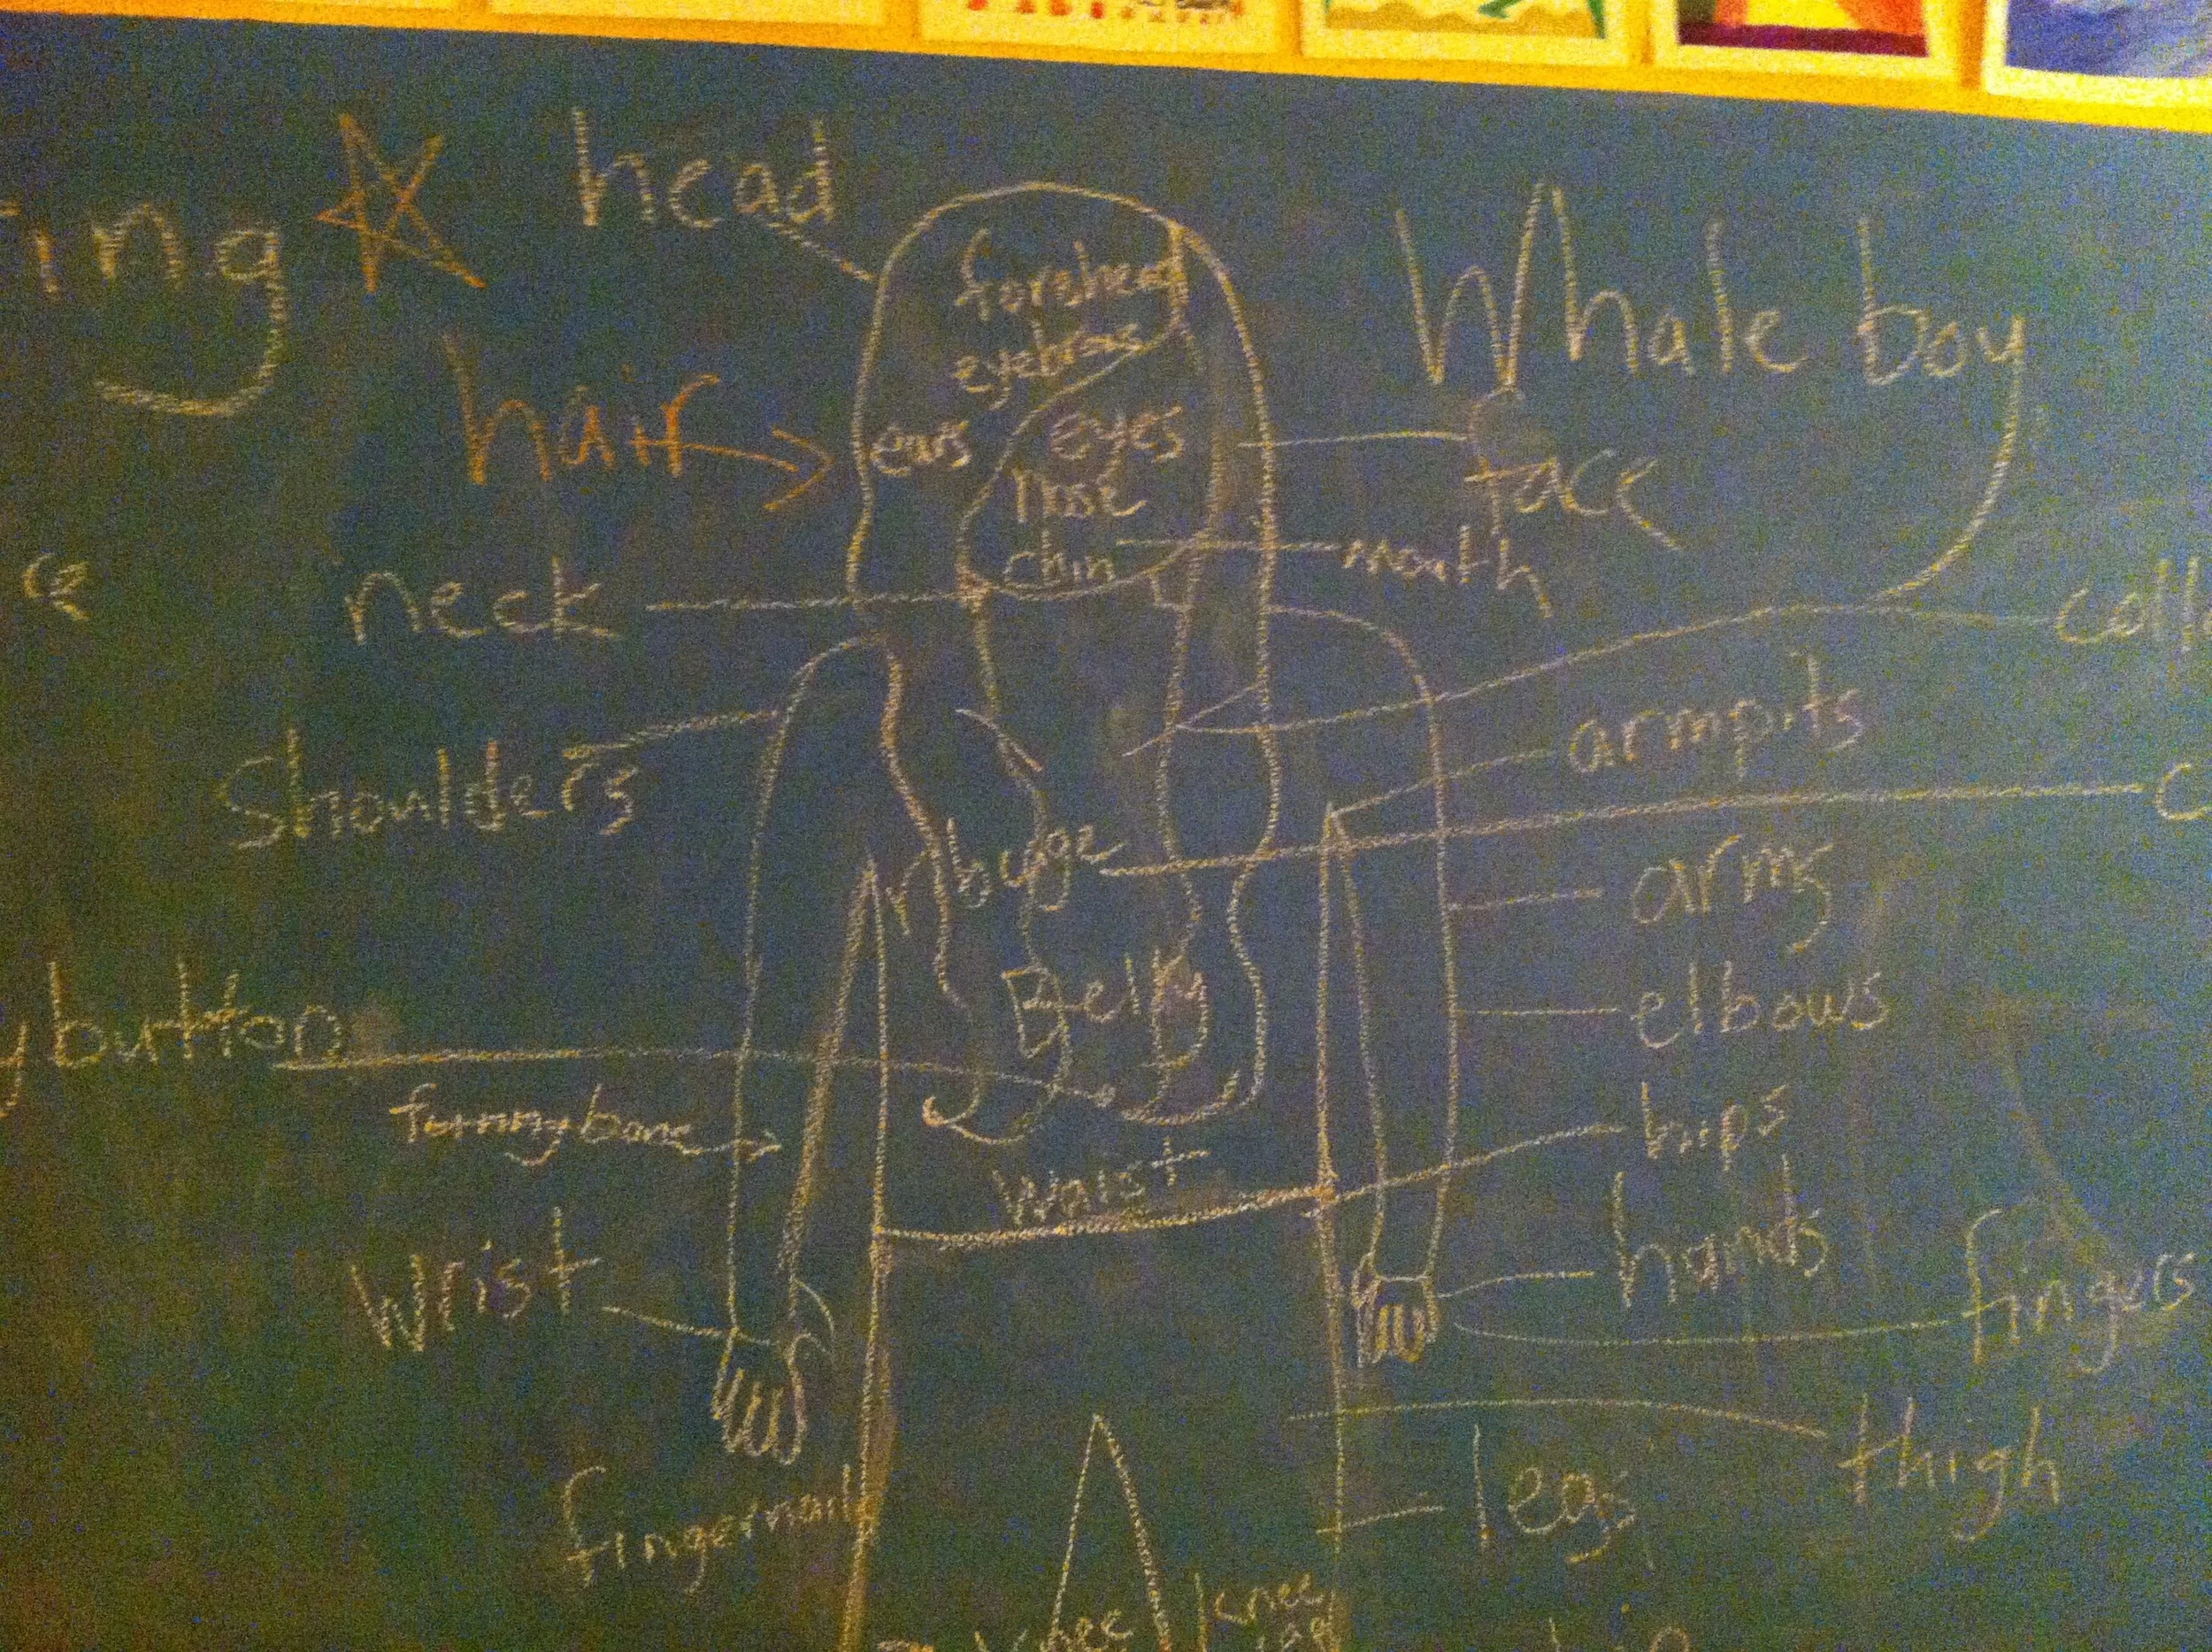 ing head
Whale boy
forehead
eyebrows
hair
ears
eyes
face
nose
chin
mouth
neck
coll
armpits
shoulders
c
arms
Belly
elbows
y button
funny bone
hips
waist
hands
wrist
fingers
thigh
legs
fingernails
knee
knee